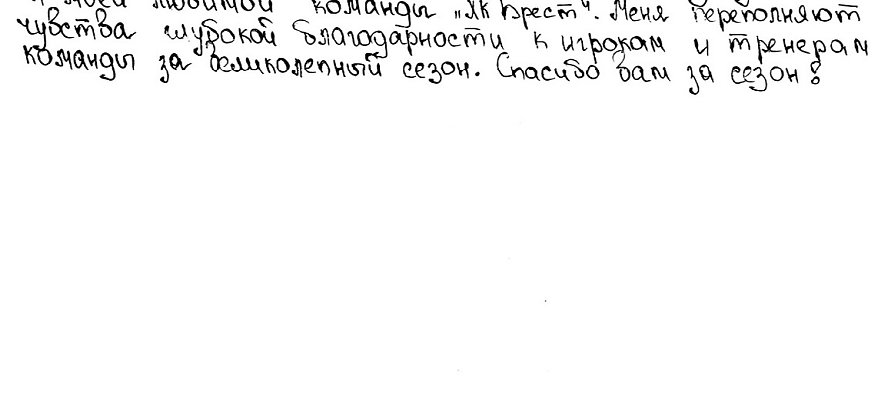 моей любимой команды „ХК Брест". Меня переполняют
чувства глубокой благодарности к игрокам и тренерам
команды за великолепный сезон. Спасибо вам за сезон!